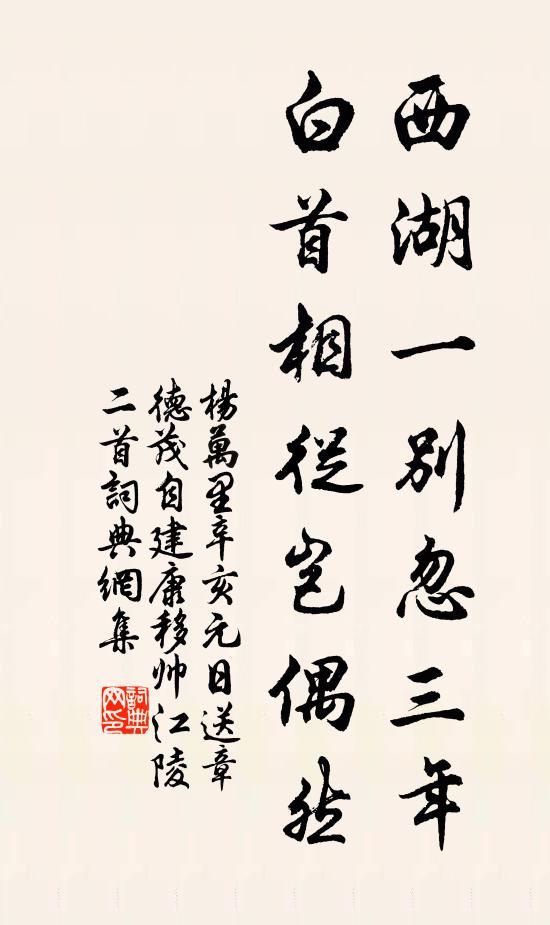 西湖一別忽三年
白首相從豈偶然
楊萬里辛亥元日送章
德茂自建康移帅江陵
二首詞典網集
詞典
网印